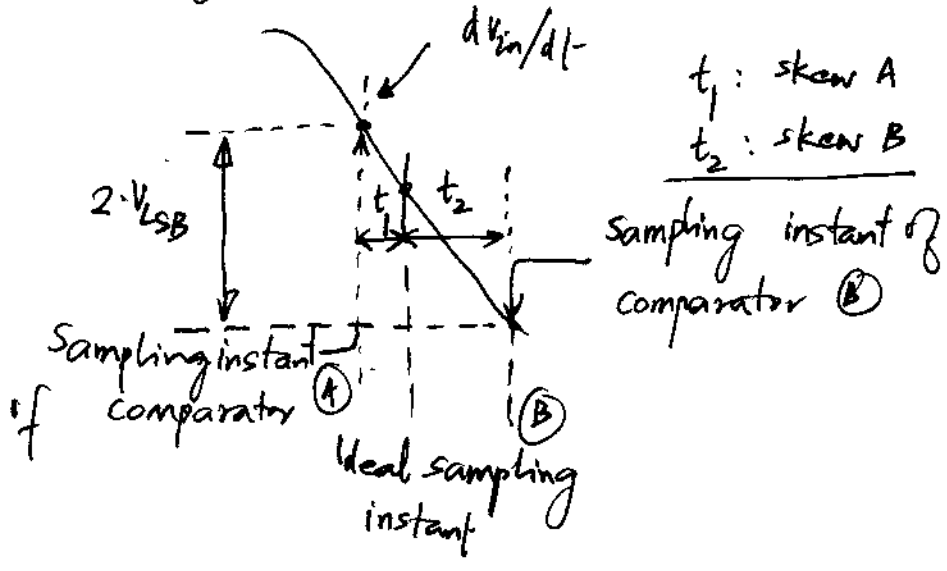 dVin/dt
t1 : skew A
t2 : skew B
2·VLSB
t1
t2
Sampling instant of
comparator Ⓑ
Sampling instant
if comparator Ⓐ
Ⓑ
Ideal sampling
instant